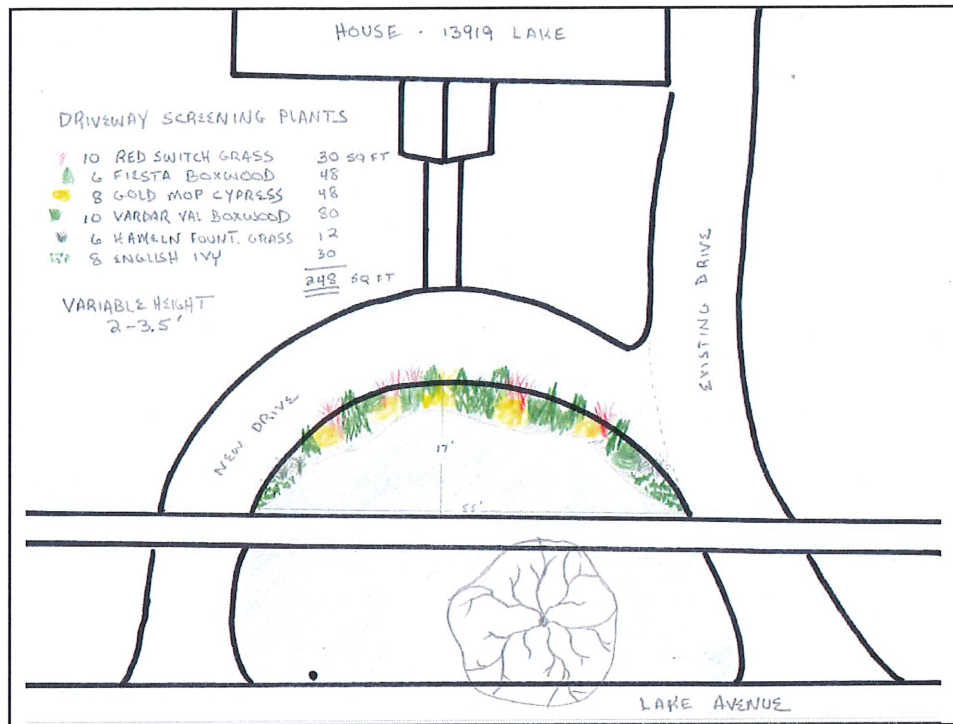 HOUSE · 13919 LAKE
DRIVEWAY SCREENING PLANTS
10 RED SWITCH GRASS 30 SQ FT
6 FIESTA BOXWOOD 48
8 GOLD MOP CYPRESS 48
10 VARDAR VAL BOXWOOD 80
6 HAMELN FOUNT. GRASS 12
8 ENGLISH IVY 30
248 SQ FT
VARIABLE HEIGHT
2-3.5'
EXISTING DRIVE
NEW DRIVE
17'
55'
LAKE AVENUE